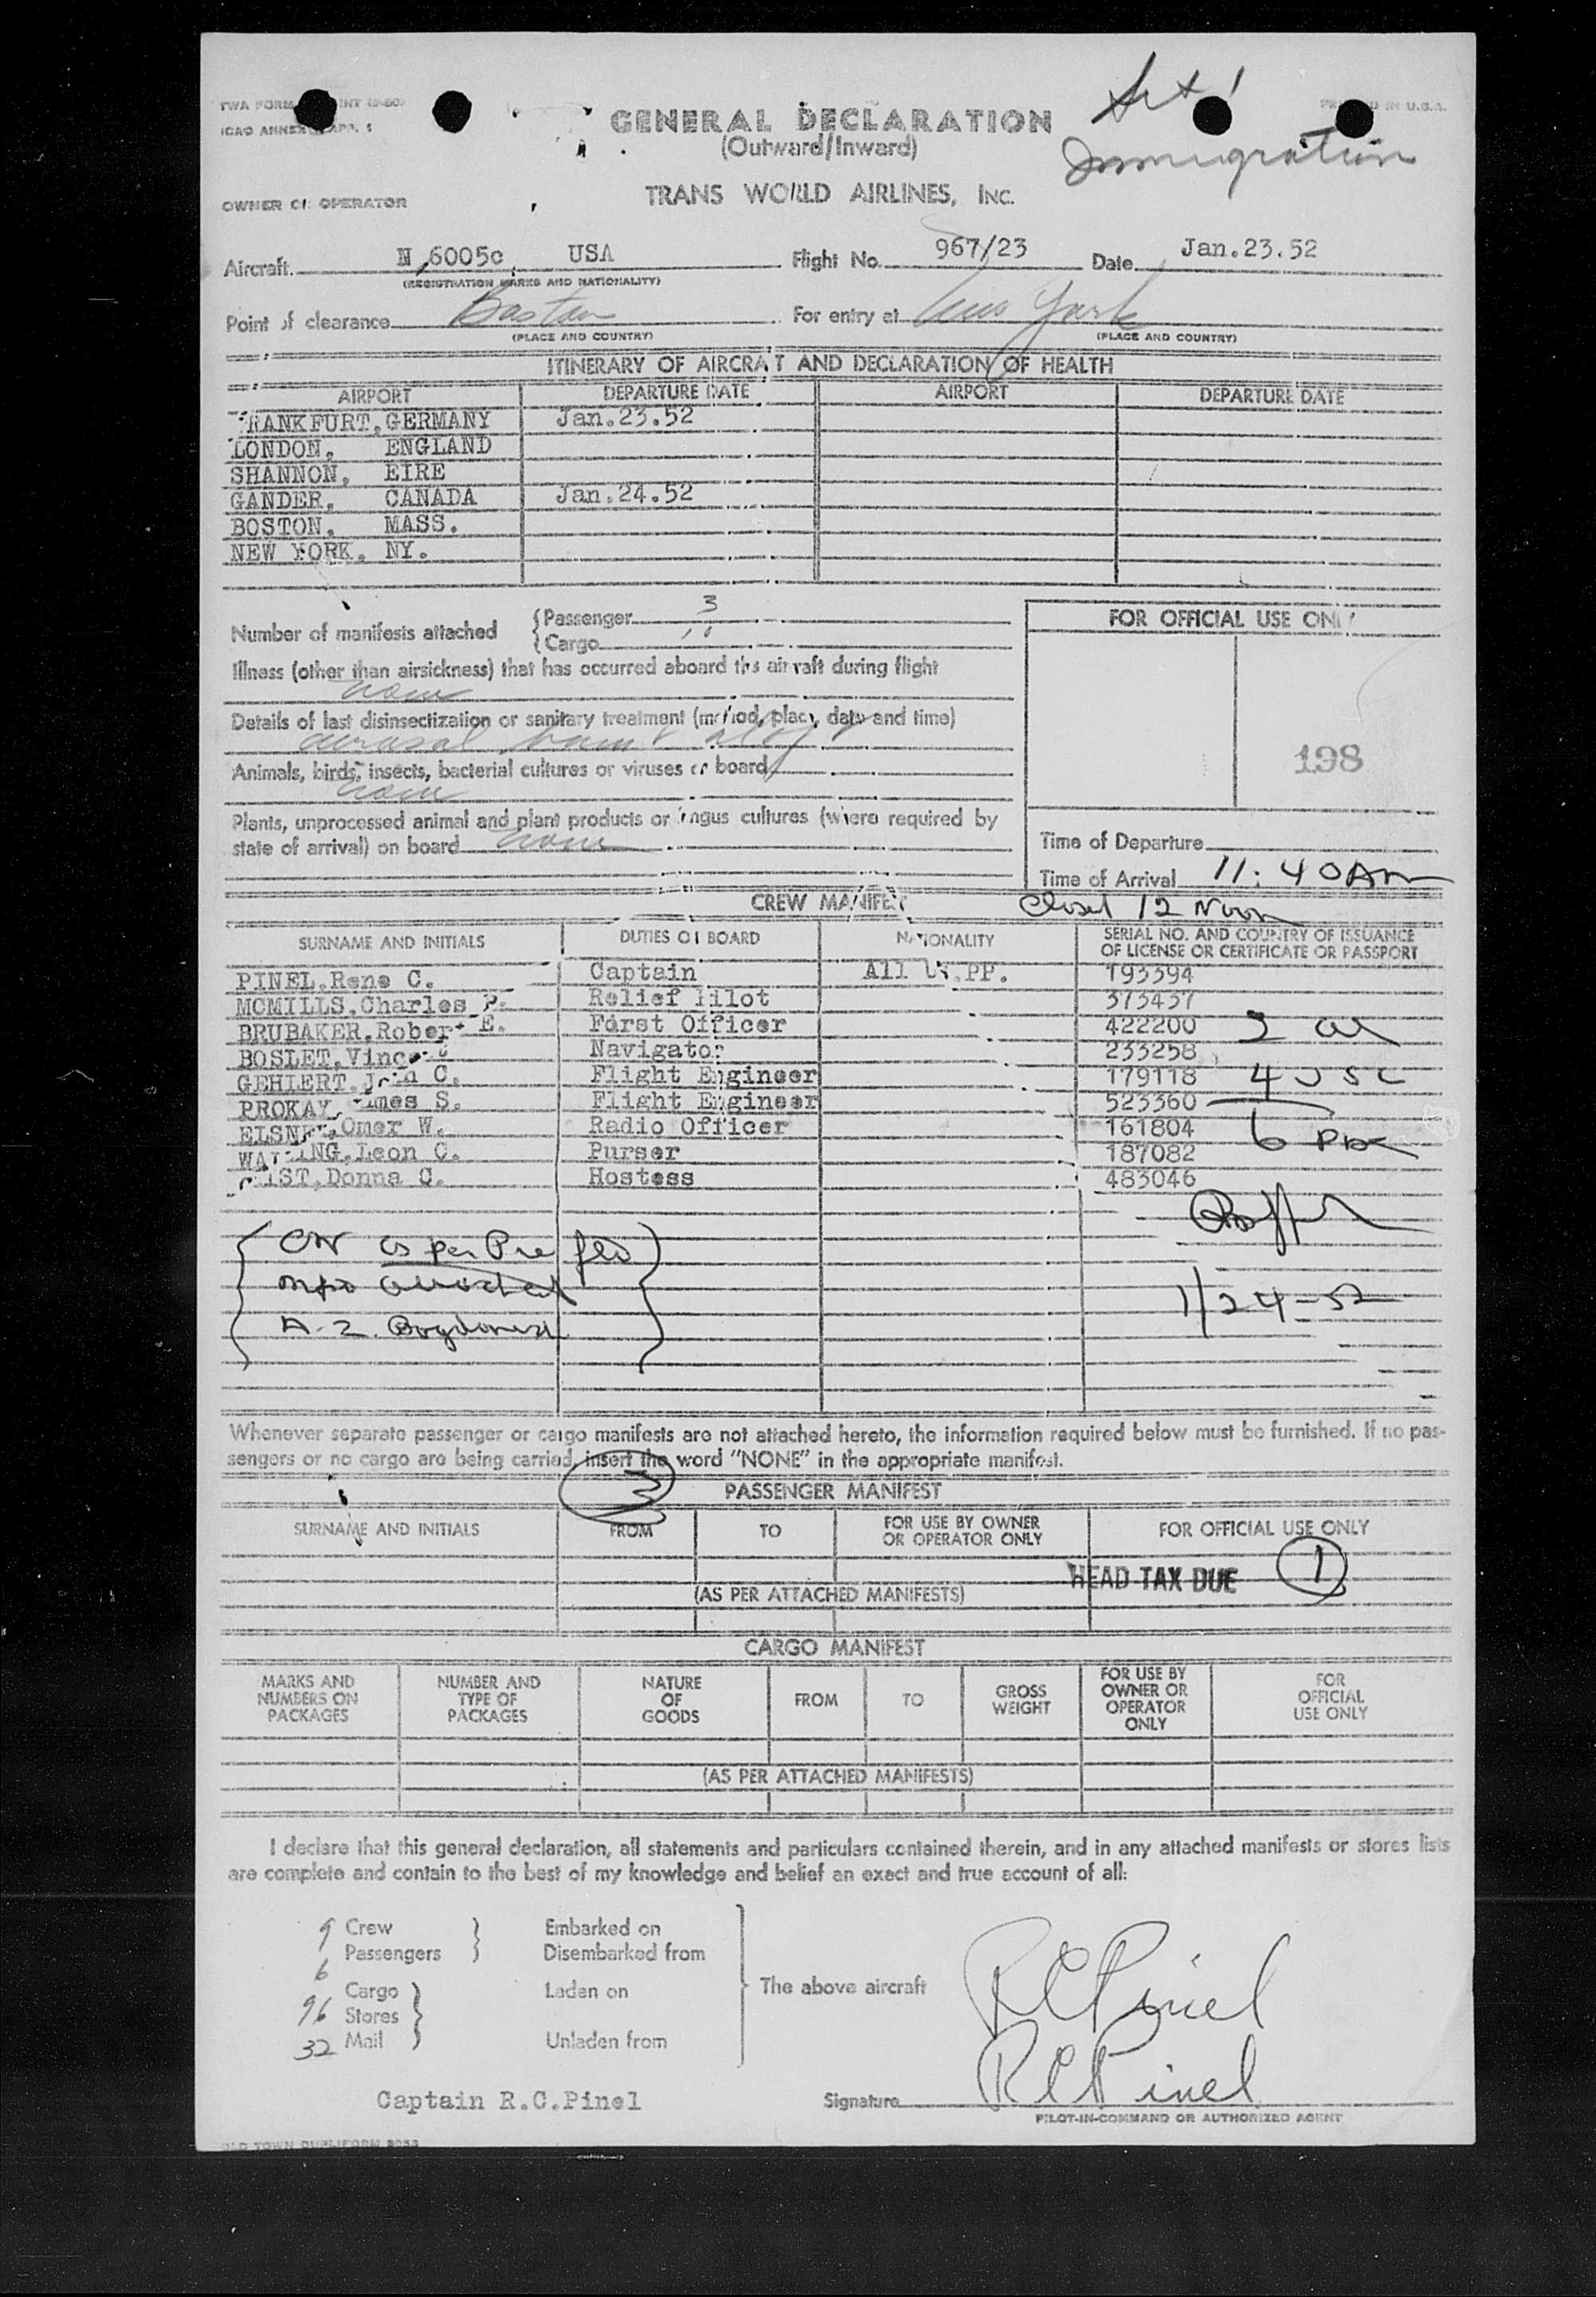 TWA FORM
ICAO ANNEX
GENERAL DECLARATION
(Outward/Inward)
Immigration
OWNER OR OPERATOR
TRANS WORLD AIRLINES, INC.
Aircraft N 6005c USA Flight No. 967/23 Date Jan.23.52
(REGISTRATION MARKS AND NATIONALITY)
Point of clearance Boston For entry at New York
(PLACE AND COUNTRY) (PLACE AND COUNTRY)
ITINERARY OF AIRCRAFT AND DECLARATION OF HEALTH
AIRPORT DEPARTURE DATE AIRPORT DEPARTURE DATE
FRANKFURT, GERMANY Jan.23.52
LONDON, ENGLAND
SHANNON, EIRE
GANDER, CANADA Jan.24.52
BOSTON, MASS.
NEW YORK, NY.
Number of manifests attached {Passenger 3
{Cargo 11
FOR OFFICIAL USE ONLY
Illness (other than airsickness) that has occurred aboard the aircraft during flight
none
Details of last disinsectization or sanitary treatment (method, place, date and time)
aerosol
198
Animals, birds, insects, bacterial cultures or viruses on board
none
Plants, unprocessed animal and plant products or fungus cultures (where required by
state of arrival) on board none
Time of Departure
Time of Arrival 11:40 AM
CREW MANIFEST Closed 12 Noon
SURNAME AND INITIALS DUTIES ON BOARD NATIONALITY SERIAL NO. AND COUNTRY OF ISSUANCE
OF LICENSE OR CERTIFICATE OR PASSPORT
PINEL,Rene C. Captain All US.PP. 193394
MCMILLS,Charles P. Relief Pilot 373437
BRUBAKER,Robert E. First Officer 422200 2 al
BOSLET,Vincent Navigator 233258
GEHLERT, C. Flight Engineer 179118 4 USC
PROKAY, James S. Flight Engineer 523360
ELSNER,Omer W. Radio Officer 161804 6 pax
Leon C. Purser 187082
Donna C. Hostess 483046
CW as per Pre fld
attached
A. Z.
1/24-52
Whenever separate passenger or cargo manifests are not attached hereto, the information required below must be furnished. If no pas-
sengers or no cargo are being carried, insert the word "NONE" in the appropriate manifest.
3
PASSENGER MANIFEST
SURNAME AND INITIALS FROM TO FOR USE BY OWNER
OR OPERATOR ONLY FOR OFFICIAL USE ONLY
HEAD TAX DUE 1
(AS PER ATTACHED MANIFESTS)
CARGO MANIFEST
MARKS AND
NUMBERS ON
PACKAGES NUMBER AND
TYPE OF
PACKAGES NATURE
OF
GOODS FROM TO GROSS
WEIGHT FOR USE BY
OWNER OR
OPERATOR
ONLY FOR
OFFICIAL
USE ONLY
(AS PER ATTACHED MANIFESTS)
I declare that this general declaration, all statements and particulars contained therein, and in any attached manifests or stores lists
are complete and contain to the best of my knowledge and belief an exact and true account of all:
9 Crew Embarked on
6 Passengers Disembarked from
96 Cargo Laden on The above aircraft
Stores
32 Mail Unladen from
R C Pinel
Captain R.C.Pinel Signature R C Pinel
PILOT-IN-COMMAND OR AUTHORIZED AGENT